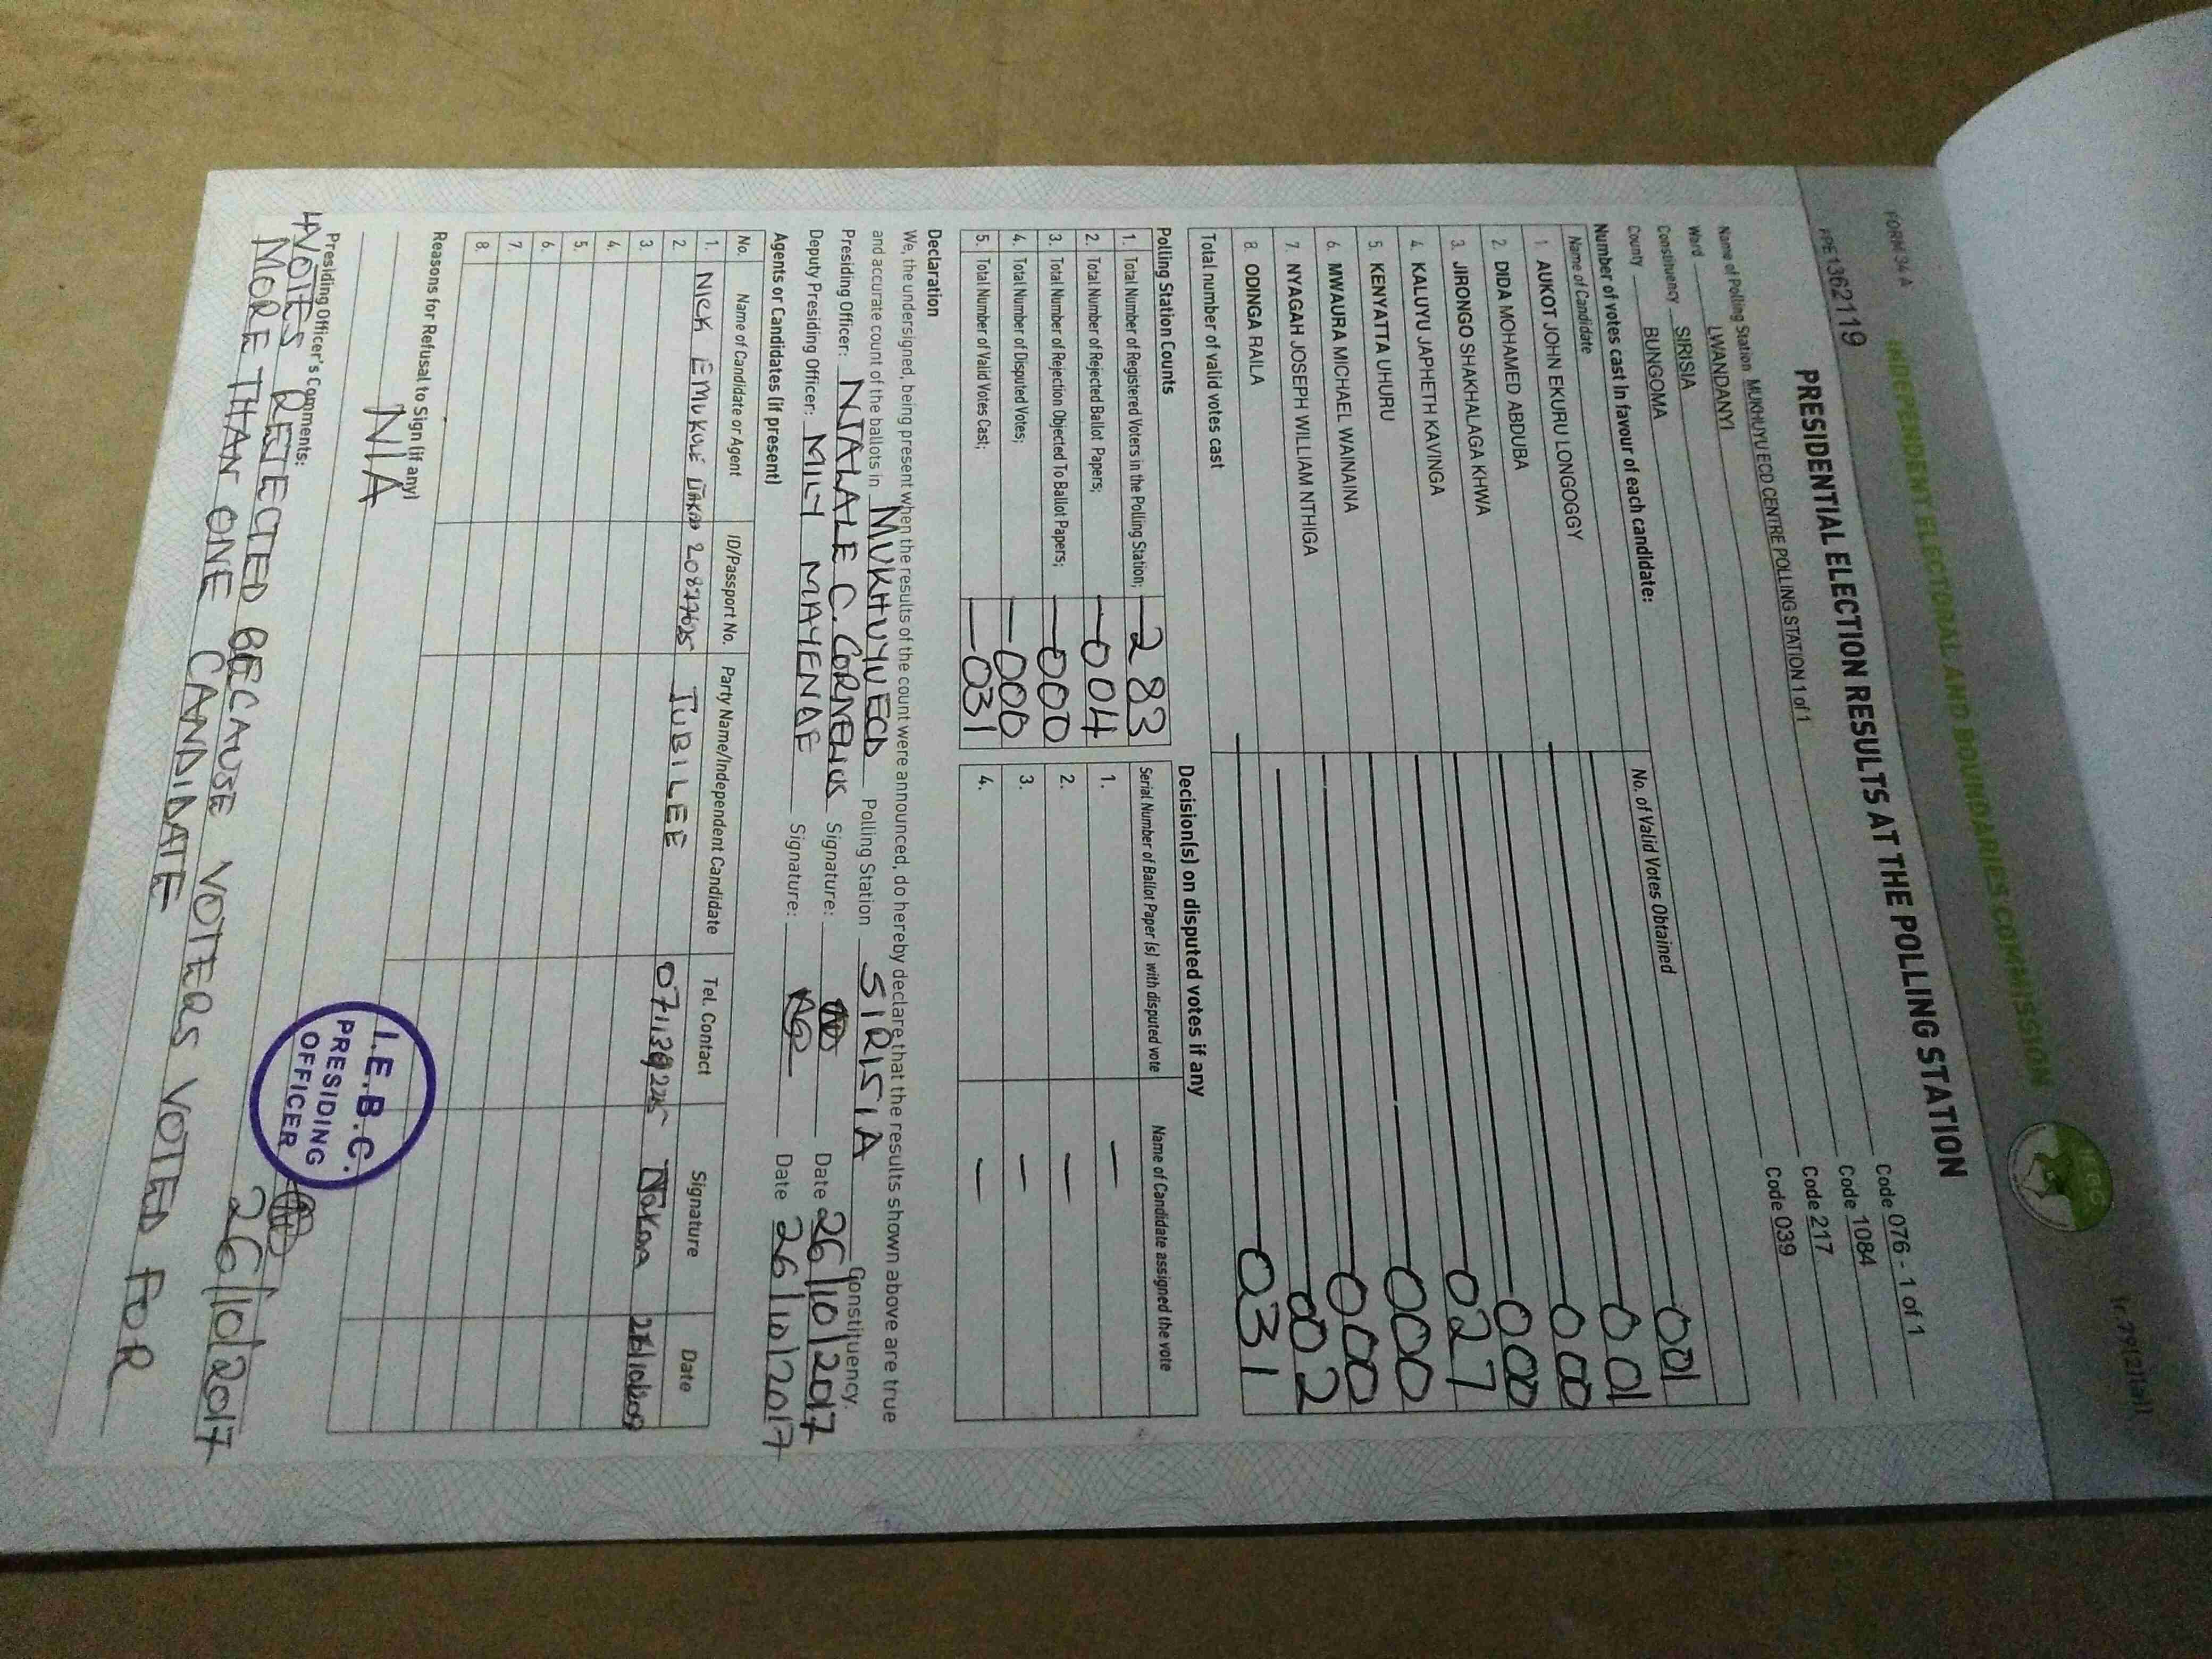 FORM 34 A
INDEPENDENT ELECTORAL AND BOUNDARIES COMMISSION
IEBC
FPE1362119
PRESIDENTIAL ELECTION RESULTS AT THE POLLING STATION
Name of Polling Station MUKHUYU ECD CENTRE POLLING STATION 1 of 1 Code 076 - 1 of 1
Ward LWANDANYI Code 1084
Constituency SIRISIA Code 217
County BUNGOMA Code 039
Number of votes cast in favour of each candidate:
Name of Candidate No. of Valid Votes Obtained
1. AUKOT JOHN EKURU LONGOGGY 001
2. DIDA MOHAMED ABDUBA 001
3. JIRONGO SHAKHALAGA KHWA 000
4. KALUYU JAPHETH KAVINGA 000
5. KENYATTA UHURU 027
6. MWAURA MICHAEL WAINAINA 000
7. NYAGAH JOSEPH WILLIAM NTHIGA 000
8. ODINGA RAILA 002
Total number of valid votes cast 031
Polling Station Counts
1. Total Number of Registered Voters in the Polling Station; 283
2. Total Number of Rejected Ballot Papers; 004
3. Total Number of Rejection Objected To Ballot Papers; 000
4. Total Number of Disputed Votes; 000
5. Total Number of Valid Votes Cast; 031
Decision(s) on disputed votes if any
Serial Number of Ballot Paper (s) with disputed vote Name of Candidate assigned the vote
1. —
2. —
3. —
4. —
Declaration
We, the undersigned, being present when the results of the count were announced, do hereby declare that the results shown above are true
and accurate count of the ballots in MUKHUYU ECD Polling Station SIRISIA Constituency.
Presiding Officer: NJALALE C. CORNELIUS Signature: Date 26/10/2017
Deputy Presiding Officer: MILY MAYENDE Signature: Date 26/10/2017
Agents or Candidates (if present)
No. Name of Candidate or Agent ID/Passport No. Party Name/Independent Candidate Tel. Contact Signature Date
1. NICK 20877625 JUBILEE
2.
3.
4.
5.
6.
7.
8.
Reasons for Refusal to Sign (if any)
N/A
Presiding Officer's Comments:
4 VOTES REJECTED BECAUSE VOTERS VOTED FOR
MORE THAN ONE CANDIDATE
26/10/2017
I.E.B.C.
PRESIDING
OFFICER